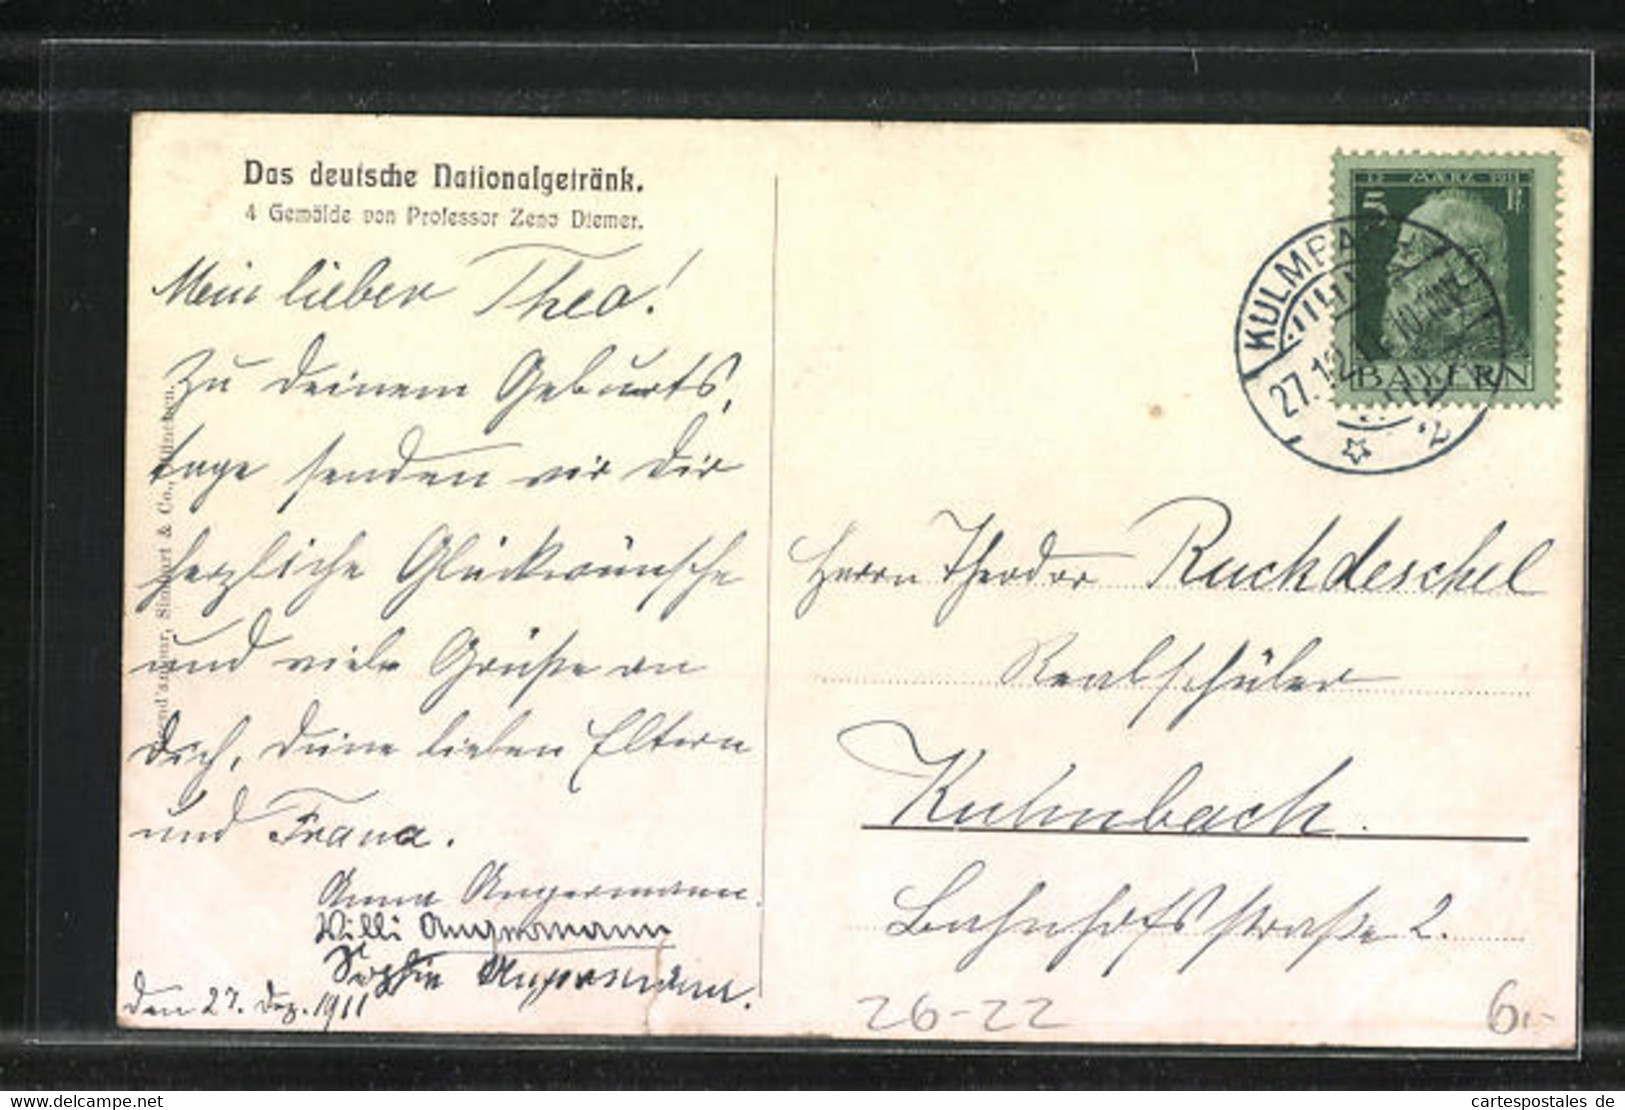 Das deutsche Nationalgetränk.
4 Gemälde von Professor Zeno Diemer.
Mein lieber Theo!
Zu deinem Geburts-
tage senden wir Dir
herzliche Glückwünsche
und viele Grüße an
Dich, deine lieben Eltern
und
Anna Angermann.
Willi Angermann
Sophie Angermann.
Den 27. Dez. 1911
Simhart & Co., München.
12 MÄRZ 1911
5
BAYERN
KULMBACH
27.12
2
Herrn Theodor Ruckdeschel
Realschüler
Kulmbach.
Bahnhofsstraße 2.
26-22
6.-
www.cartespostales.de